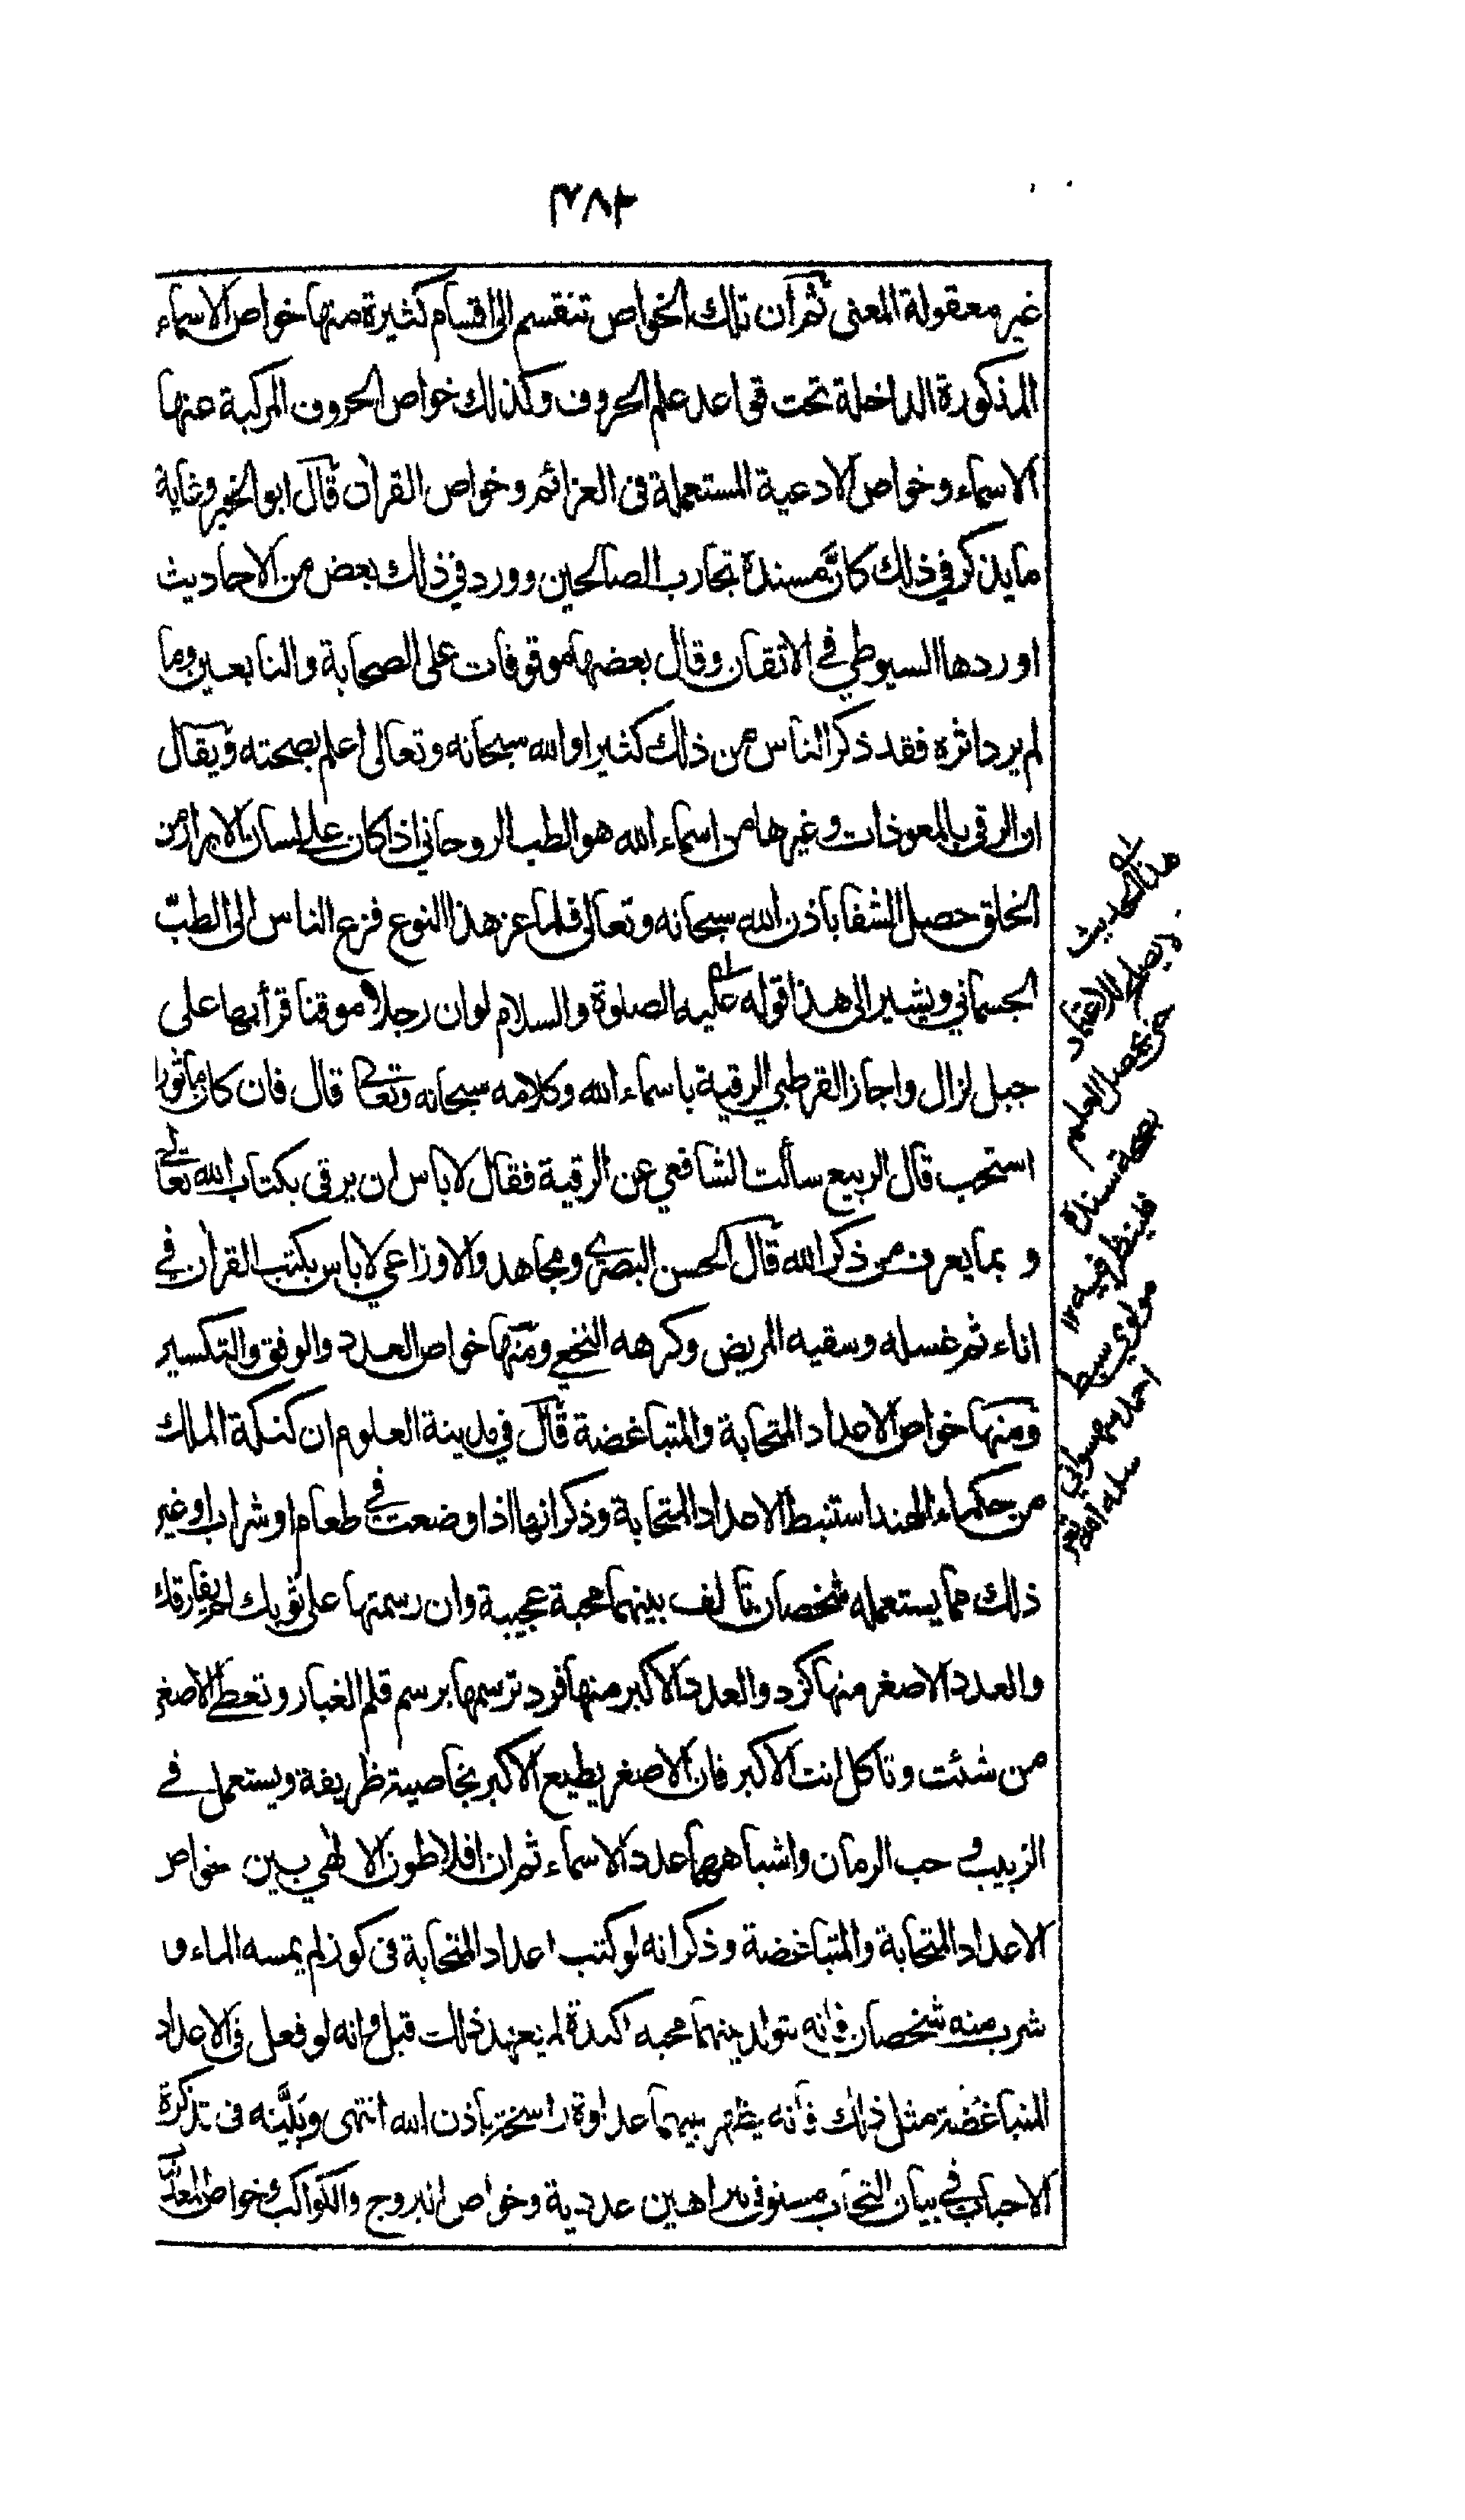 ٣٨٢
غير معقولة المعنى ثم ان تلك الخواص تنقسم الى اقسام كثيرة منها خواص الاسماء
المذكورة الداخلة تحت قواعد علم الحروف وكذلك خواص الحروف المركبة عنها
الاسماء وخواص الادعية المستعملة فى العزائم وخواص القرآن قال ابو الخير وغاية
ما يذكر في ذلك كان مسنده تجارب الصالحين وورد في ذلك بعض من الاحاديث
اوردها السيوطي في الاتقان وقال بعضها موقوفات على الصحابة والتابعين وما
لم يرد اثره فقد ذكر الناس من ذلك كثيرا والله سبحانه وتعالى اعلم بصحته ويقال
ان الرقى بالمعوذات وغيرها من اسماء الله هو الطب الروحاني اذا كان على لسان الابرار من
الخلق حصل الشفا باذن الله سبحانه وتعالى فلما عز هذا النوع فزع الناس الى الطب
الجسماني ويشير الى هذا قوله عليه الصلوة والسلام لو ان رجلا موقنا قرأ بها على
جبل لزال واجاز القرطبي الرقية باسماء الله وكلامه سبحانه وتعالى قال فان كان ماثورا
استحب قال الربيع سألت الشافعي عن الرقية فقال لا باس ان يرقى بكتاب الله تعالى
و بما يعرف من ذكر الله قال الحسن البصري ومجاهد والاوزاعي لا باس بكتب القرآن في
اناء ثم غسله وسقيه المريض وكرهه النخعي ومنها خواص العدد والوفق والتكسير
ومنها خواص الاعداد المتحابة والمتباغضة قال في مدينة العلوم ان كنكة الملك
من حكماء الهند استنبط الاعداد المتحابة وذكر انها اذا وضعت في طعام او شراب او غير
ذلك مما يستعمله شخصان تألف بينهما محبة عجيبة وان رسمتها على ثوبك لم يفارقك
والعدد الاصغر منها كرد والعدد الاكبر منها فرد ترسمها برسم قلم الغبار وتعطي الاصغر
من شئت وتاكل انت الاكبر فان الاصغر يطيع الاكبر بخاصية ظريفة ويستعمل في
الزبيب و حب الرمان واشباههما عدد الاسماء ثم ان افلاطون الالهي بين خواص
الاعداد المتحابة والمتباغضة وذكر انه لو كتب اعداد المتحابة فى كوز لم يمسه الماء و
شرب منه شخصان فانه يتولد بينهما محبة اكيدة لم يعهد ذلك قبل وانه لو فعل فى الاعداد
المتباغضة مثل ذلك فانه يظهر بينهما عداوة راسخة باذن الله انتهى وبينه فى تذكرة
الاحباب في بيان التحاب مستوفى ببراهين عددية وخواص البروج والكواكب وخواص المعدن
هذا الحديث
بصحة سنده
فلينظر فيه ١٢
مولوي سيد
احمد سهسواني
سلمه الله تعالى